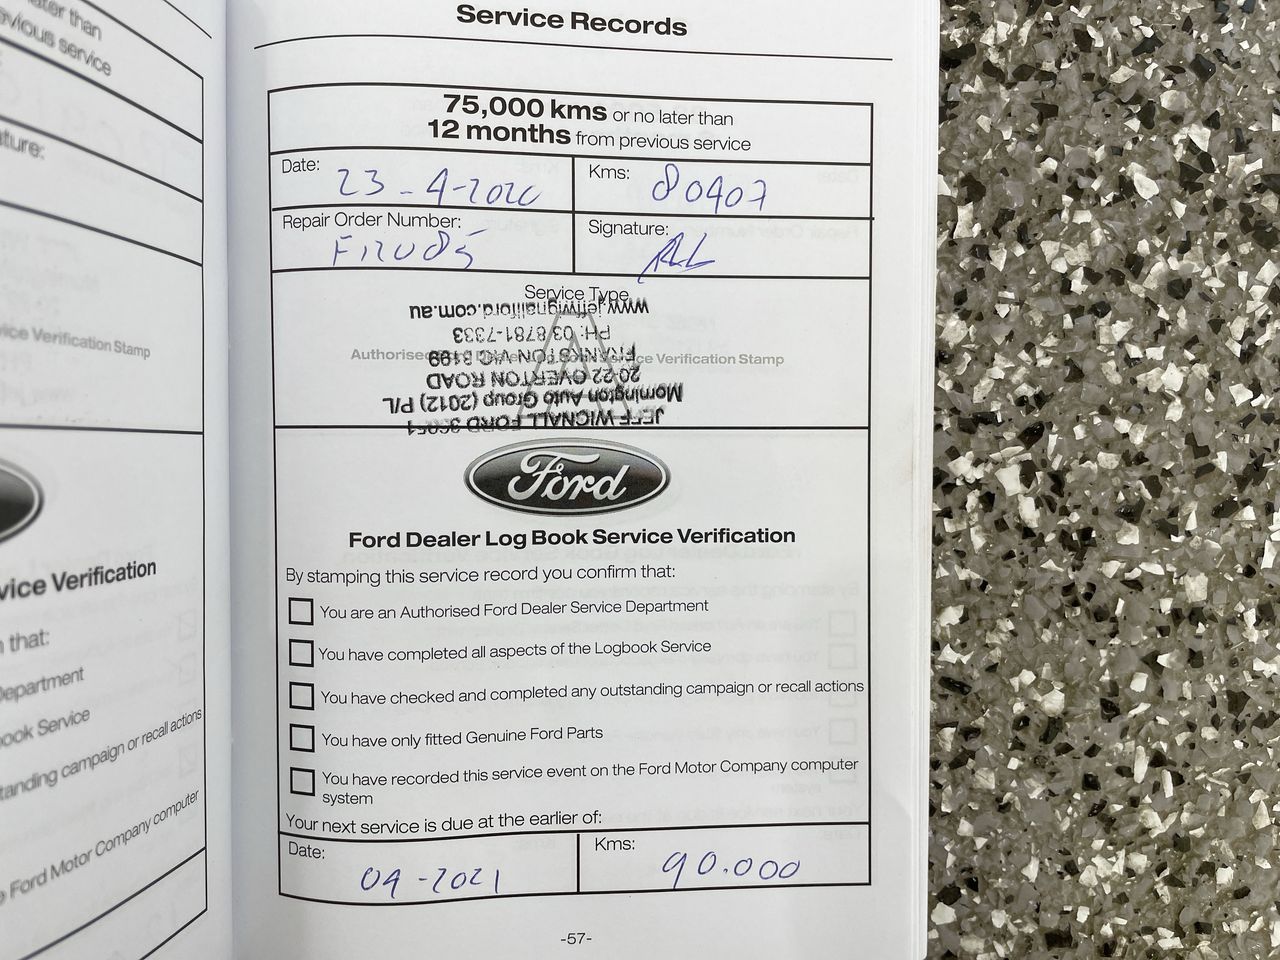 ater than
evious service
ature:
vice Verification Stamp
vice Verification
n that:
Department
ook Service
tanding campaign or recall actions
e Ford Motor Company computer
Service Records
75,000 kms or no later than
12 months from previous service
Date: 23-4-2020
Kms: 80407
Repair Order Number:
Signature:
Service Type
Authorised Ford Dealer Log Book Service Verification Stamp
JEFF WIGNALL FORD 36051
Mornington Auto Group (2012) P/L
20-22 OVERTON ROAD
FRANKSTON VIC 3199
PH: 03 8781-7333
www.jeffwignallford.com.au
Ford
Ford Dealer Log Book Service Verification
By stamping this service record you confirm that:
You are an Authorised Ford Dealer Service Department
You have completed all aspects of the Logbook Service
You have checked and completed any outstanding campaign or recall actions
You have only fitted Genuine Ford Parts
You have recorded this service event on the Ford Motor Company computer
system
Your next service is due at the earlier of:
Date: 04-2021
Kms: 90.000
-57-